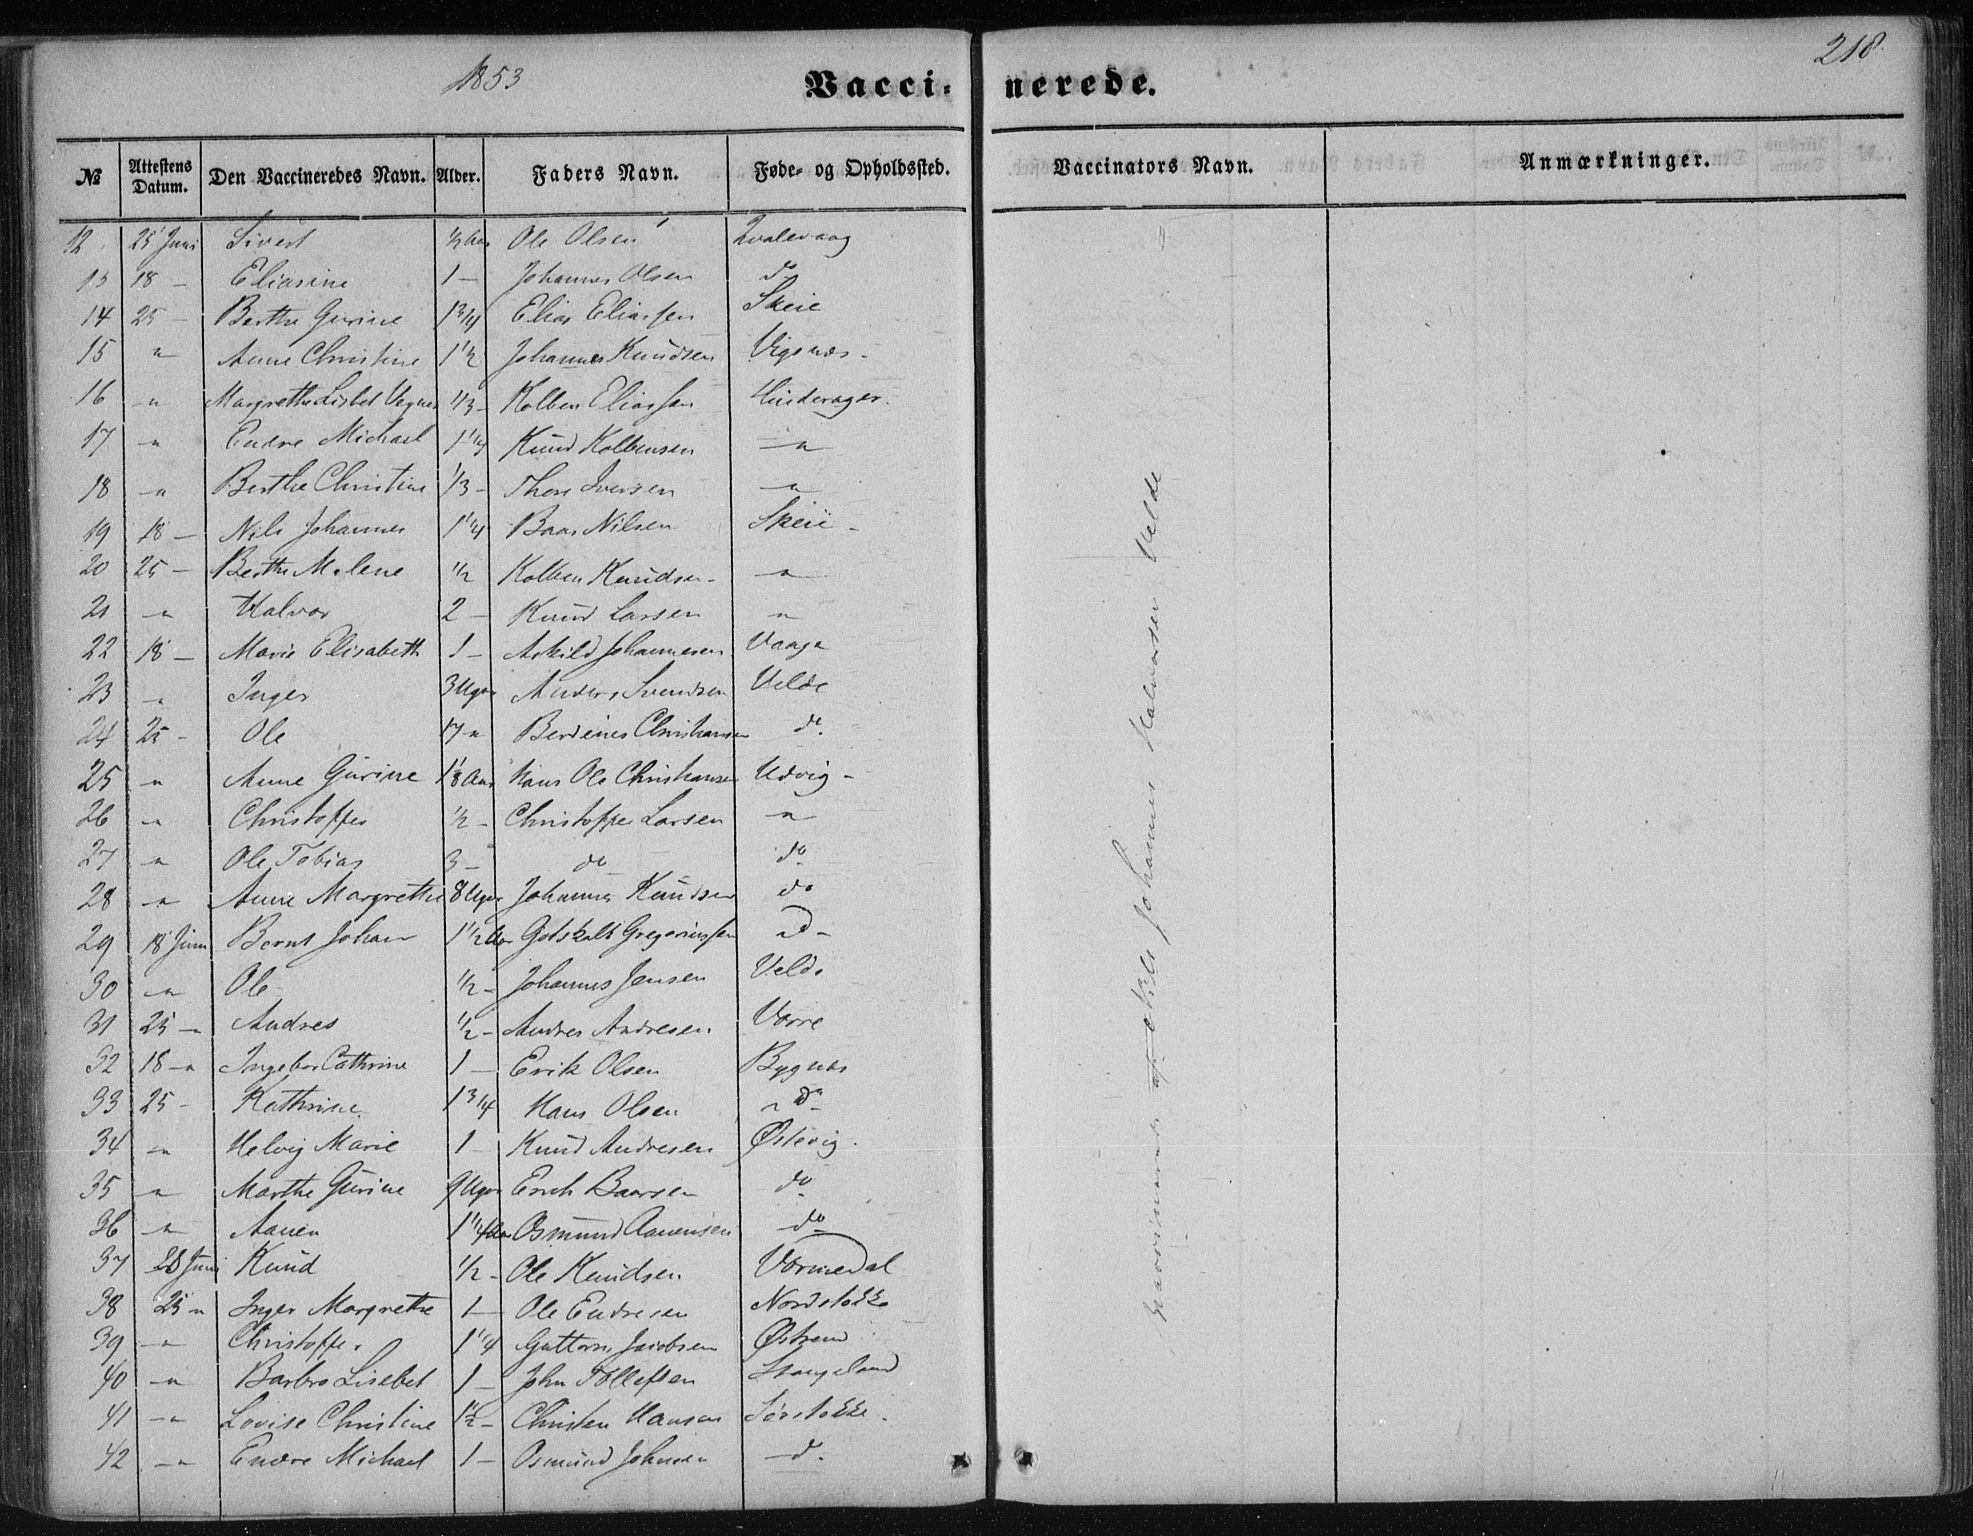 218.
1853
Vacci- nerede.
№ Attestens Datum. Den Vaccineredes Navn. Alder. Faders Navn. Føde- og Opholdssted. Vaccinators Navn. Anmærkninger.
12 25 Juni Sivert 1/2 Aar Ole Olsen Qvalevaag
13 18 - Eliasine 1 - Johannes Olsen do
14 25 - Berthe Gurine 1 3/4 Elias Eliassen Skeie
15 " Anne Christine 1 1/2 Johannes Knudsen Vigsnæs -
16 " Margrethe Lisbet 1/3 - Kolben Eliassen Hinderager.
17 " Endre Michael 1 1/4 Knud Kolbensen "
18 " Berthe Christine 1/3 - Thore Iversen "
19 18 - Nils Johannes 1 1/4 Baar Nilsen Skeie -
20 25 - Berthe Malene 1/2 Kolben Knudsen - "
21 " Halvor 2 - Knud Larsen "
22 18 - Marie Elisabeth 1 - Askild Johannesen Vaage
23 " Inger 3 Uger Anders Svendsen Velde
24 25 - Ole 17 " Berdines Christiansen do.
25 " Anne Gurine 1 1/8 Aar Hans Ole Christiansen Udvig -
26 " Christoffer 1/2 - Christoffer Larsen "
27 " Ole Tobias 3 - do do
28 " Anne Margrethe 8 Uger Johannes Knudsen do
29 18 Juni Bernt Johan 1 1/2 Aar Gotskalk Gregoriussen d -
30 " Ole 1/2 - Johannes Jensen Velde
31 25 - " Andres 1/2 - Andres Andresen Vorre
32 18 - " Ingebor Cathrine 1 - Erik Olsen Bygnæs
33 25 - Kathrine 1 3/4 Hans Olsen do
34 " Helvig Marie 1 - Knud Andresen Østevig.
35 " Marthe Gurine 9 Uger Erich Baarsen do
36 " Aanen 1 1/4 Aar Osmund Aanensen do
37 18 Juni Knud 1/2 - Ole Knudsen Vormedal
38 25 " Inger Margrethe 1 - Ole Endresen Nordstokke
39 " Christoffer 1 1/4 Guttorm Jacobsen Østrem
40 " Barbro Lisebet 1 - John Tollefsen Stangeland
41 " Lovise Christine 1 1/2 - Christen Hansen Sørstokke.
42 " Endre Michael 1 - Osmund Johnsen d.
af Nils Johannes Halvorsen Velde